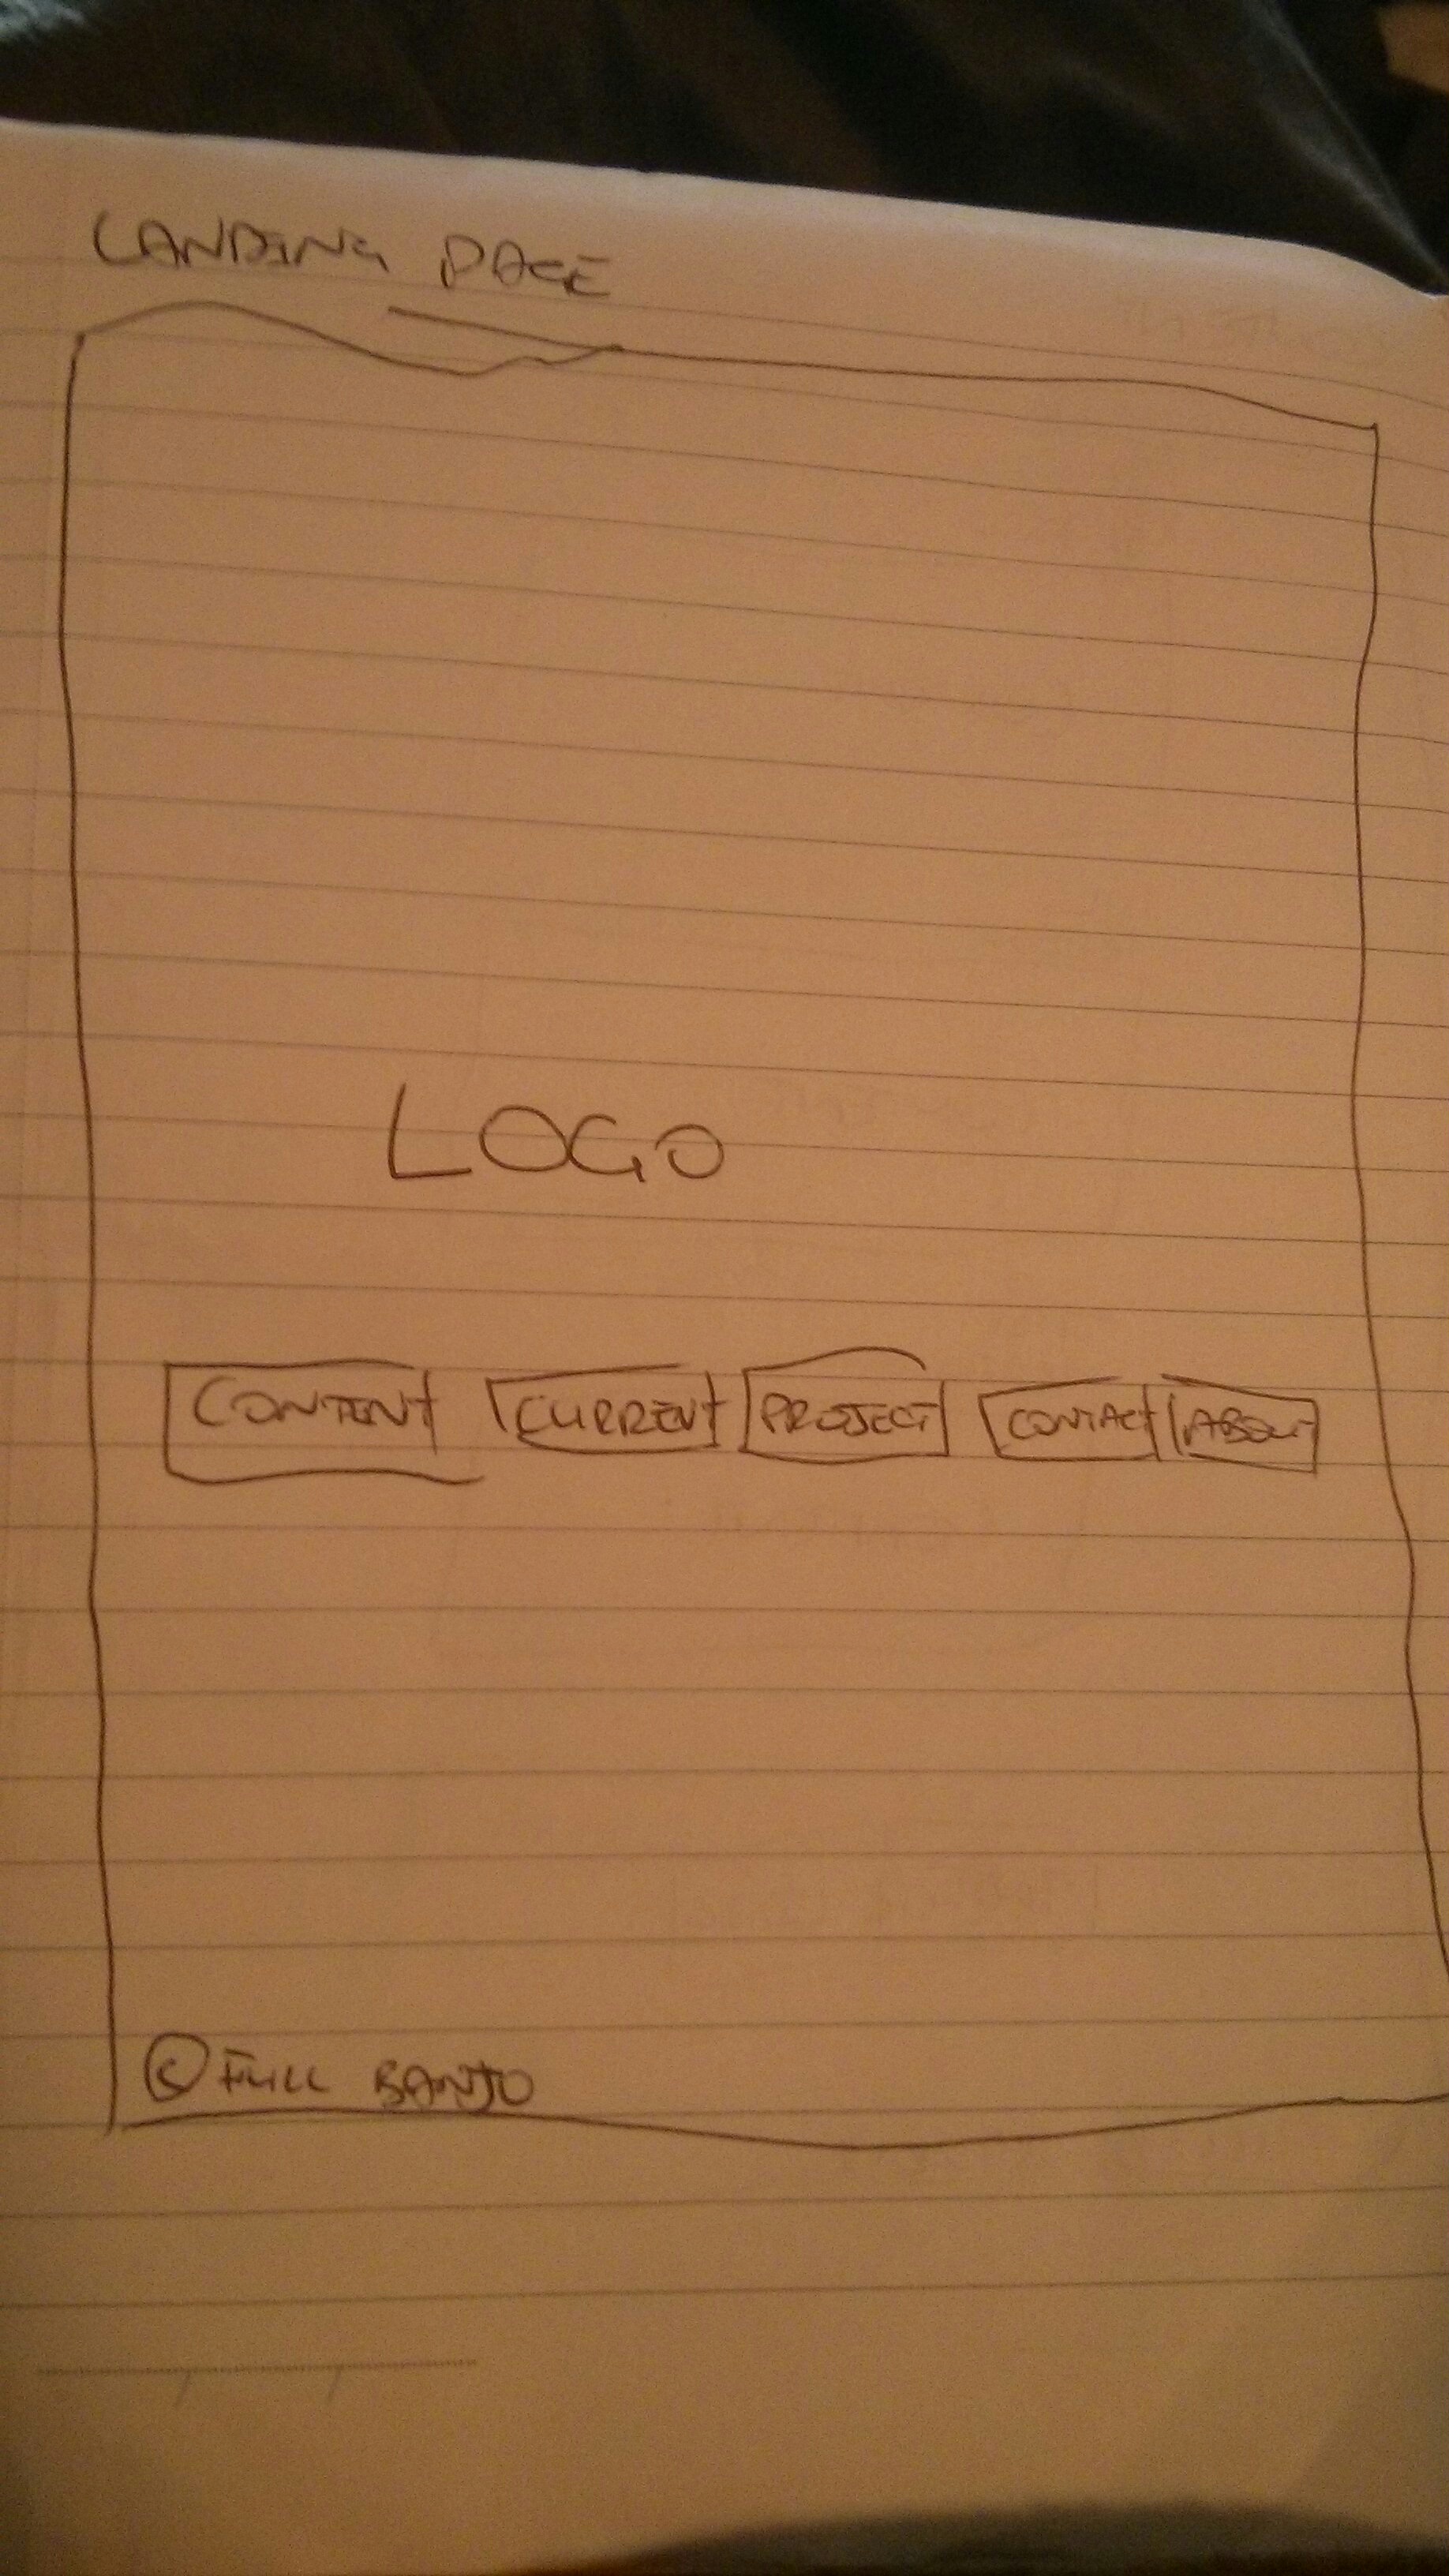 LANDING PAGE
LOGO
CONTENT CURRENT PROJECT CONTACT ABOUT
© FULL BANJO